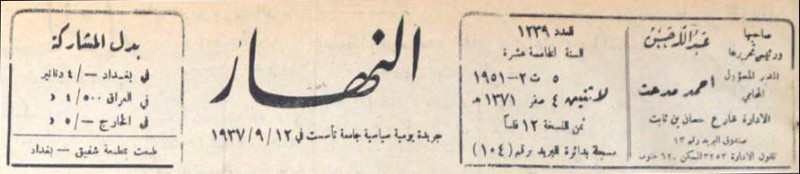 صاحبها
ورئيس تحريرها
عبدالله حسين
المدير المسؤول
المحامي
احمد مدحت
الادارة شارع حسان بن ثابت
صندوق البريد رقم ١٣
تلفون الادارة ٣٢٥٣ السكن ٦٢٠ جنوب
العدد ١٢٣٩
السنة الخامسة عشرة
٥ ت٢ – ١٩٥١
لاثنين ٤ صفر ١٣٧١ هـ
ثمن النسخة ١٢ فلساً
مسجلة بدائرة البريد برقم (١٠٤)
النهار
جريدة يومية سياسية جامعة تأسست في ١٩٣٧/٩/١٢
بدل المشاركة
في بغداد –/٤ دنانير
في العراق ٤/٥٠٠ د
في الخارج –/٥ د
طبعت بمطبعة شفيق – بغداد